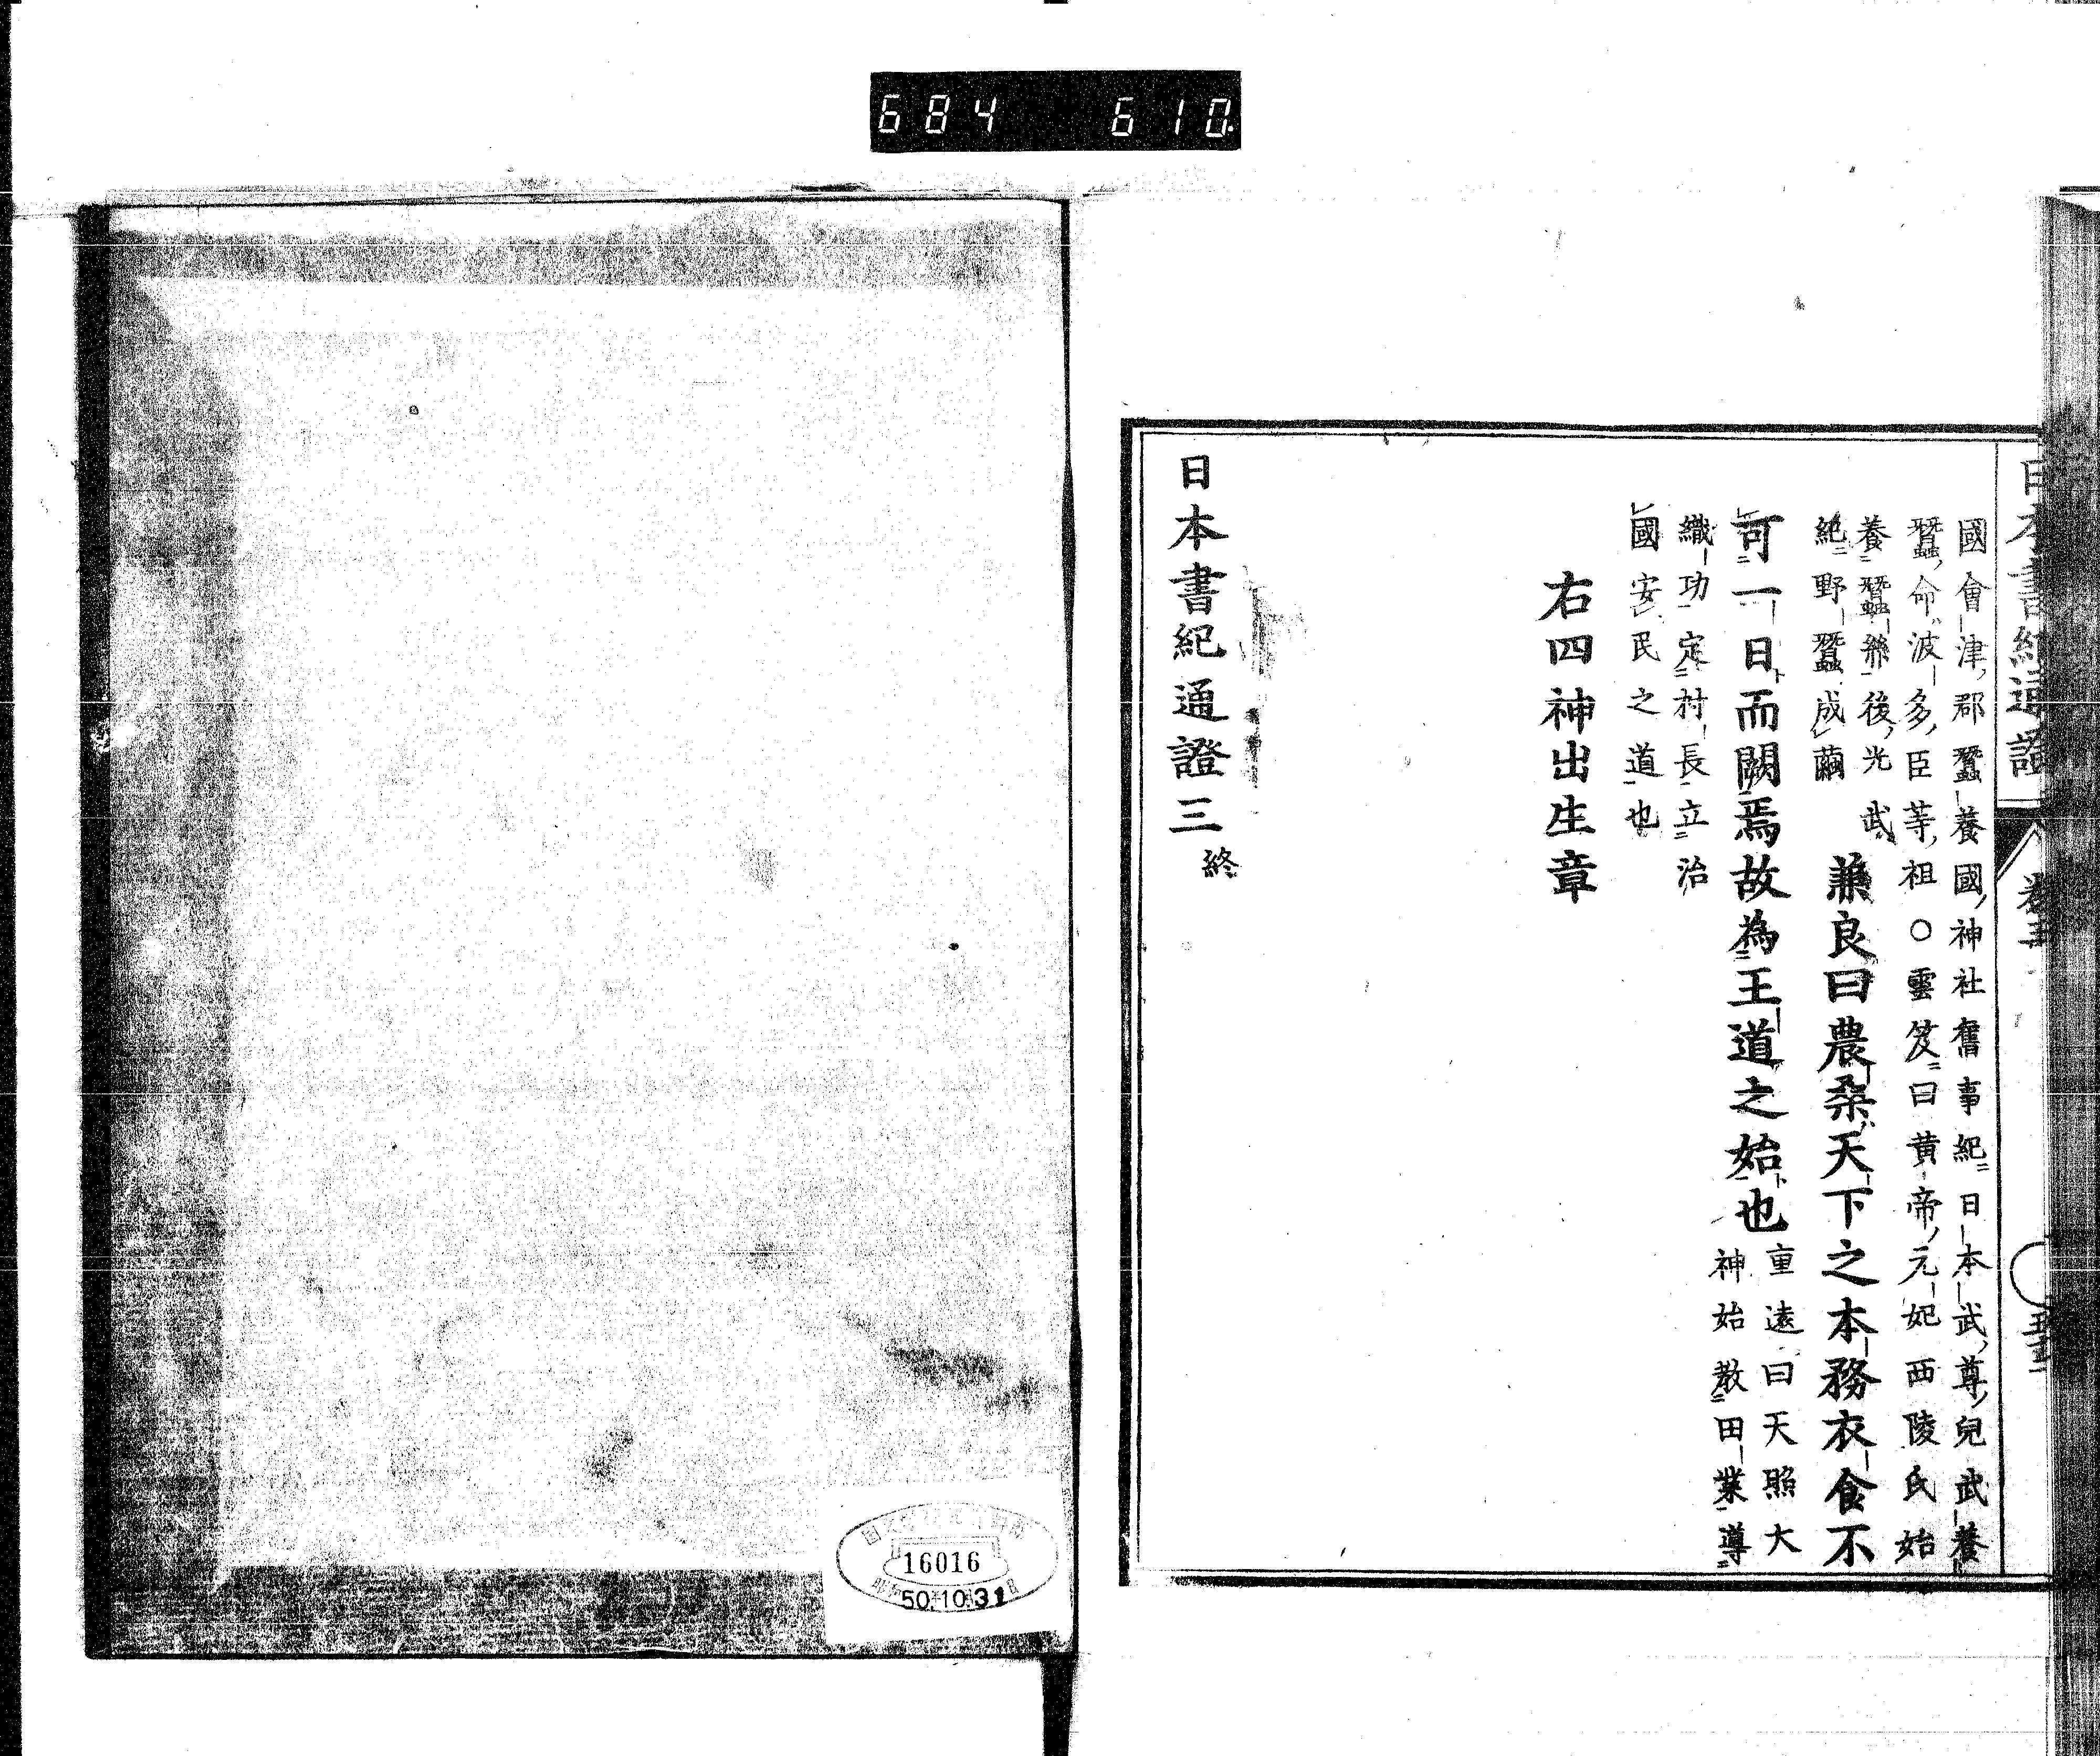 684 610
日本書紀通證
國會津郡蠶養國神社舊事紀日本武尊兒武養
蠶命波多臣等祖○雲笈曰黃帝元妃西陵氏始
養蠶絲後光武
紀野蠶成繭
兼良曰農桑天下之本務衣食不
可一日而闕焉故為王道之始也
重遠曰天照大
神始教田業導
織功定村長立治
國安民之道也
右四神出生章
日本書紀通證三終
16016
50.10.31